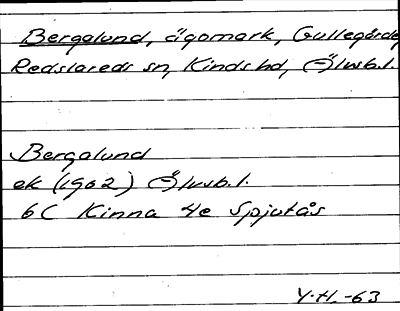 Bergalund, ägomark, Gullegårde
Redslareds sn, Kinds hd, Älvsb.l.
Bergalund
ek (1962) Älvsb.l.
6C Kinna 4e Spjutås
Y.H. -63